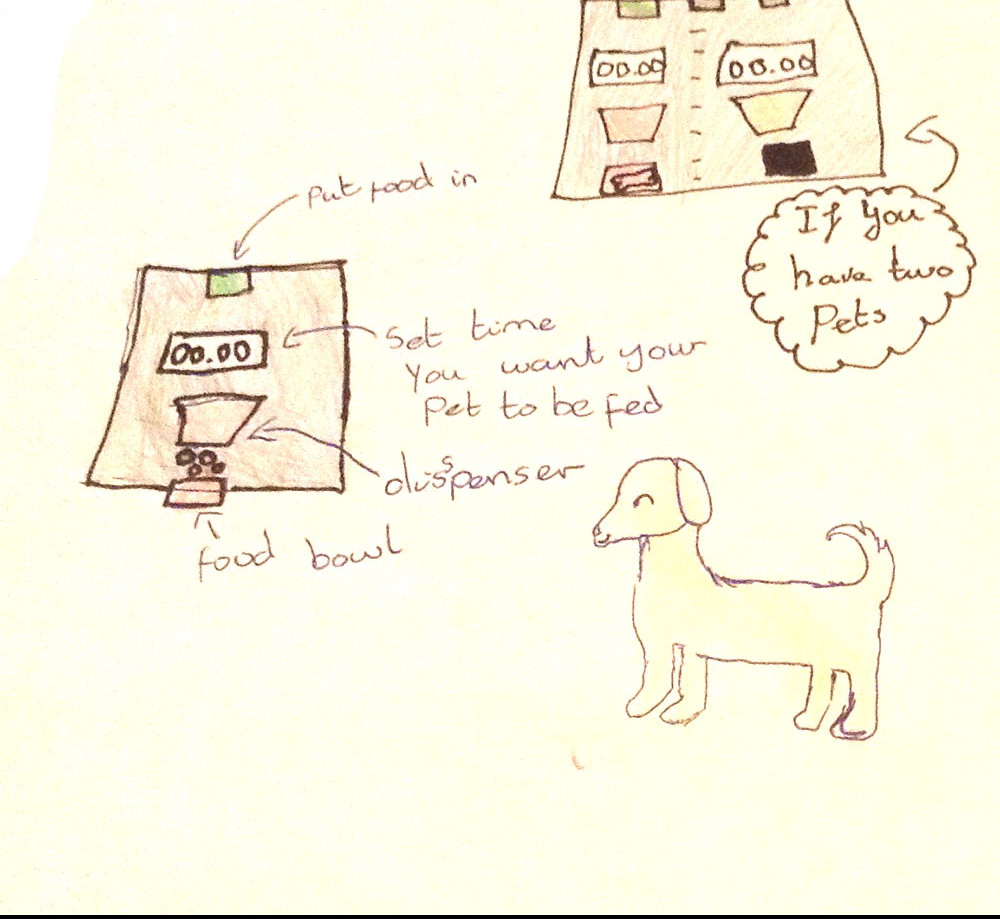 00.00 00.00
Put food in
If you
have two
Pets
00.00
Set time
you want your
Pet to be fed
dispenser
food bowl